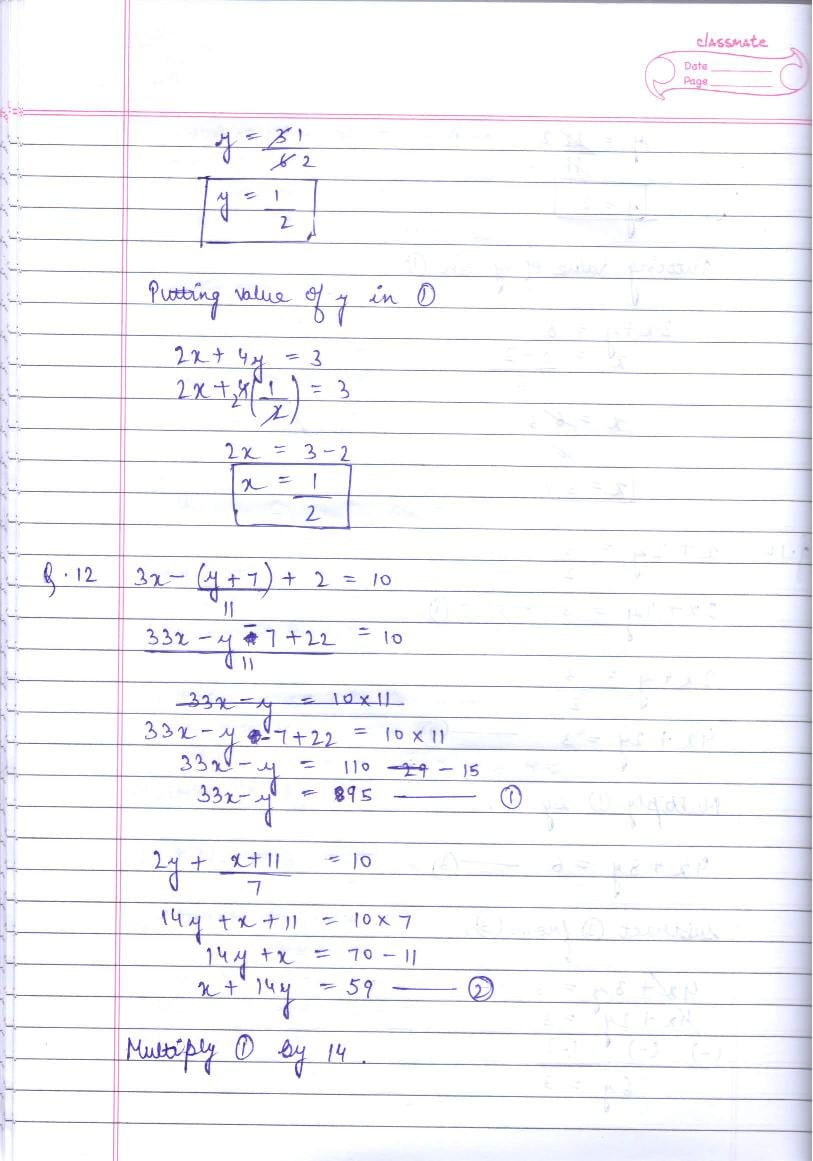 classmate
Date
Page
y = 3 1 / 6 2
y = 1/2
Putting value of y in ①
2x + 4y = 3
2x + 2 4 (1/2) = 3
2x = 3 - 2
x = 1/2
Q.12 3x - (y + 7)/11 + 2 = 10
(33x - y - 7 + 22)/11 = 10
33x - y = 10 x 11
33x - y - 7 + 22 = 10 x 11
33x - y = 110 - 29 - 15
33x - y = 95 ——— ①
2y + (x + 11)/7 = 10
14y + x + 11 = 10 x 7
14y + x = 70 - 11
x + 14y = 59 ——— ②
Multiply ① by 14.